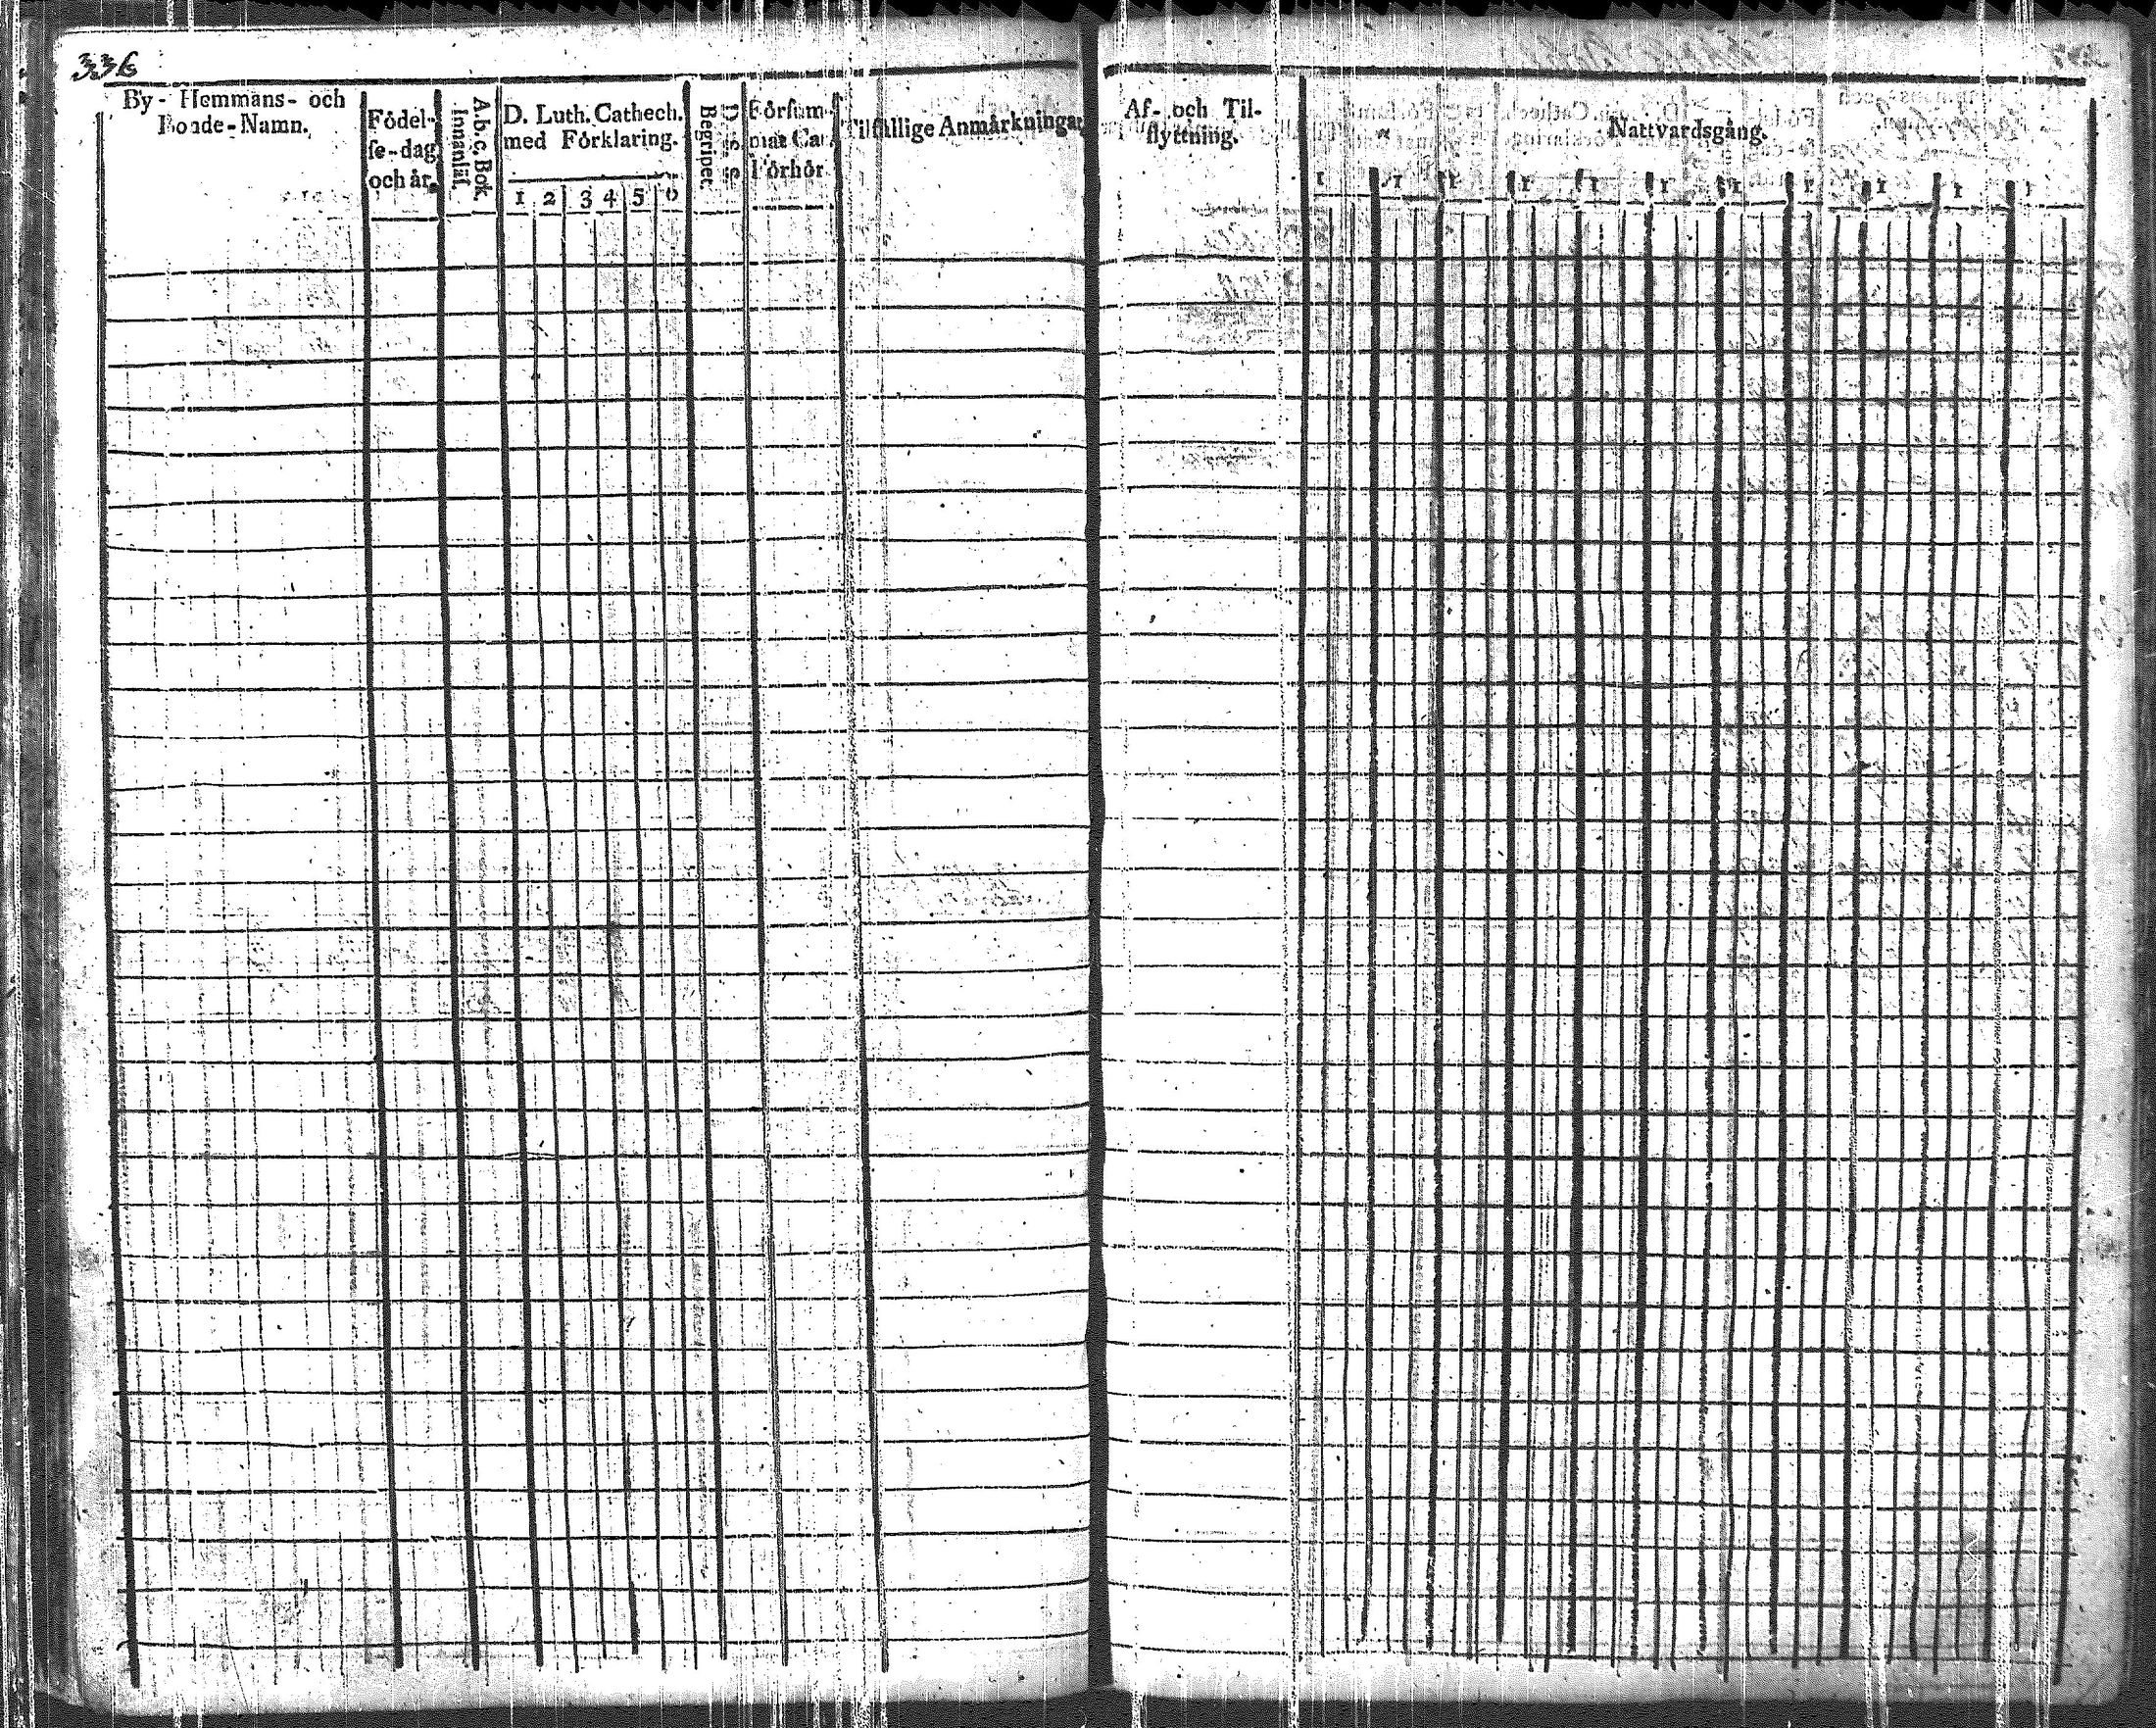 336
By- Hemmans- och
Bonde-Namn.
Födel-
se-dag
och år.
A.b.c. Bok.
Innanläs.
D. Luth. Cathech.
med Förklaring.
1 2 3 4 5 6
Begriper.
Försum-
mat Ca.
Förhör
Tilfällige Anmärkningar
Af- och Til-
flyttning.
Nattvardsgång.
1 1 1 1 1 1 1 1 1 1 1